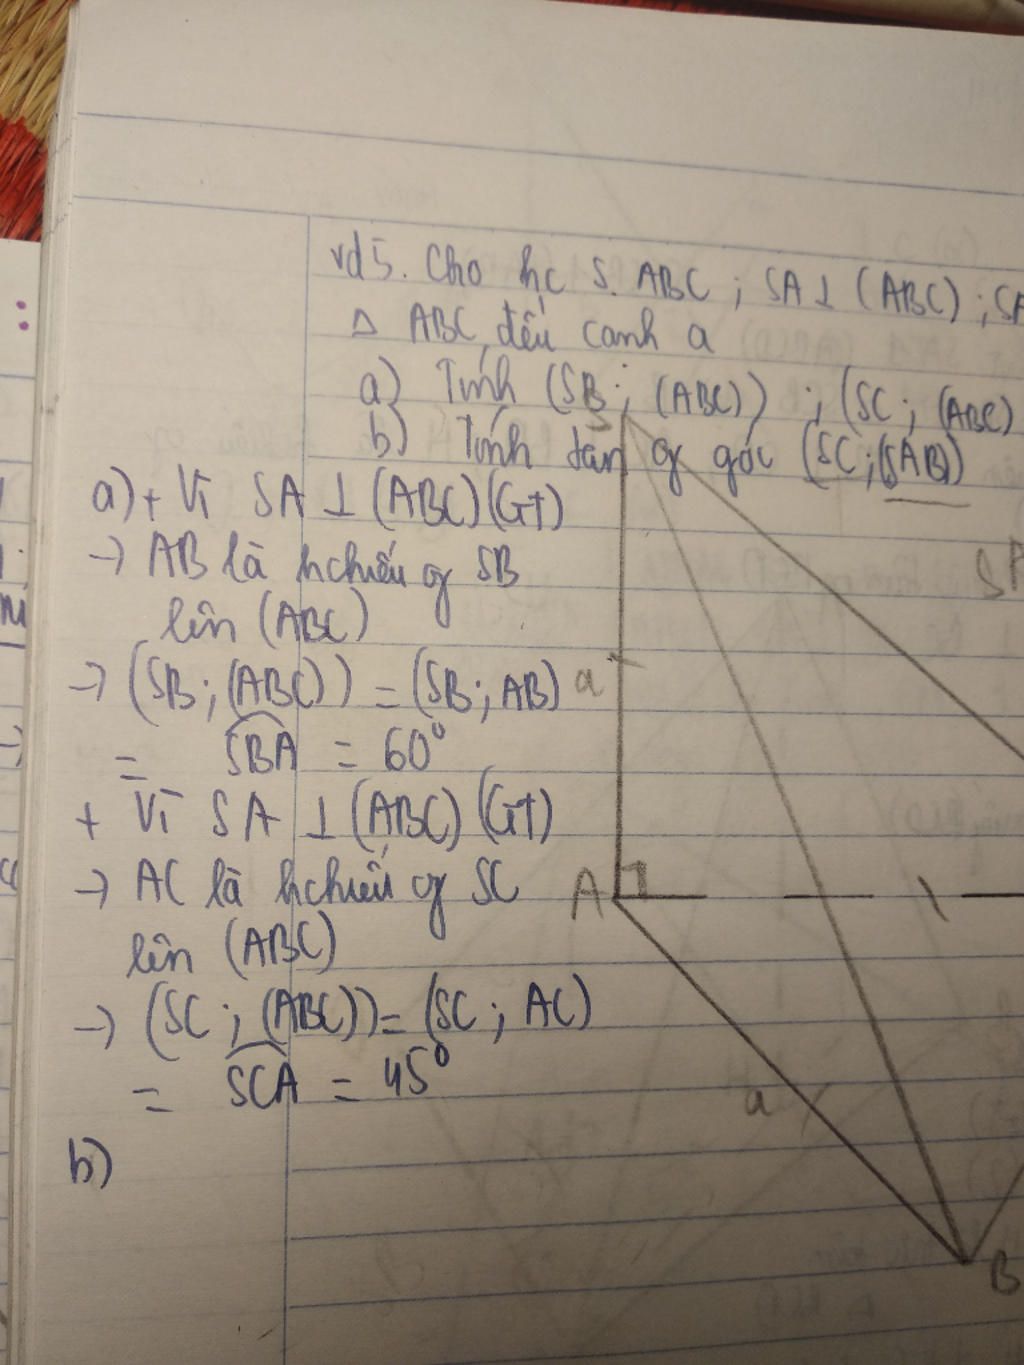 vd5. Cho hc S.ABC ; SA ⊥ (ABC) ; SA
Δ ABC đều cạnh a
a) Tính (SB ; (ABC)) ; (SC ; (ABC)
b) Tính tan cr góc (SC ; (SAB))
a) + Vì SA ⊥ (ABC) (GT)
→ AB là hchiếu cr SB
lên (ABC)
→ (SB ; (ABC)) = (SB ; AB)
= SBA = 60°
+ Vì SA ⊥ (ABC) (GT)
→ AC là hchiếu cr SC
lên (ABC)
→ (SC ; (ABC)) = (SC ; AC)
= SCA = 45°
b)
S
a
A
a
B